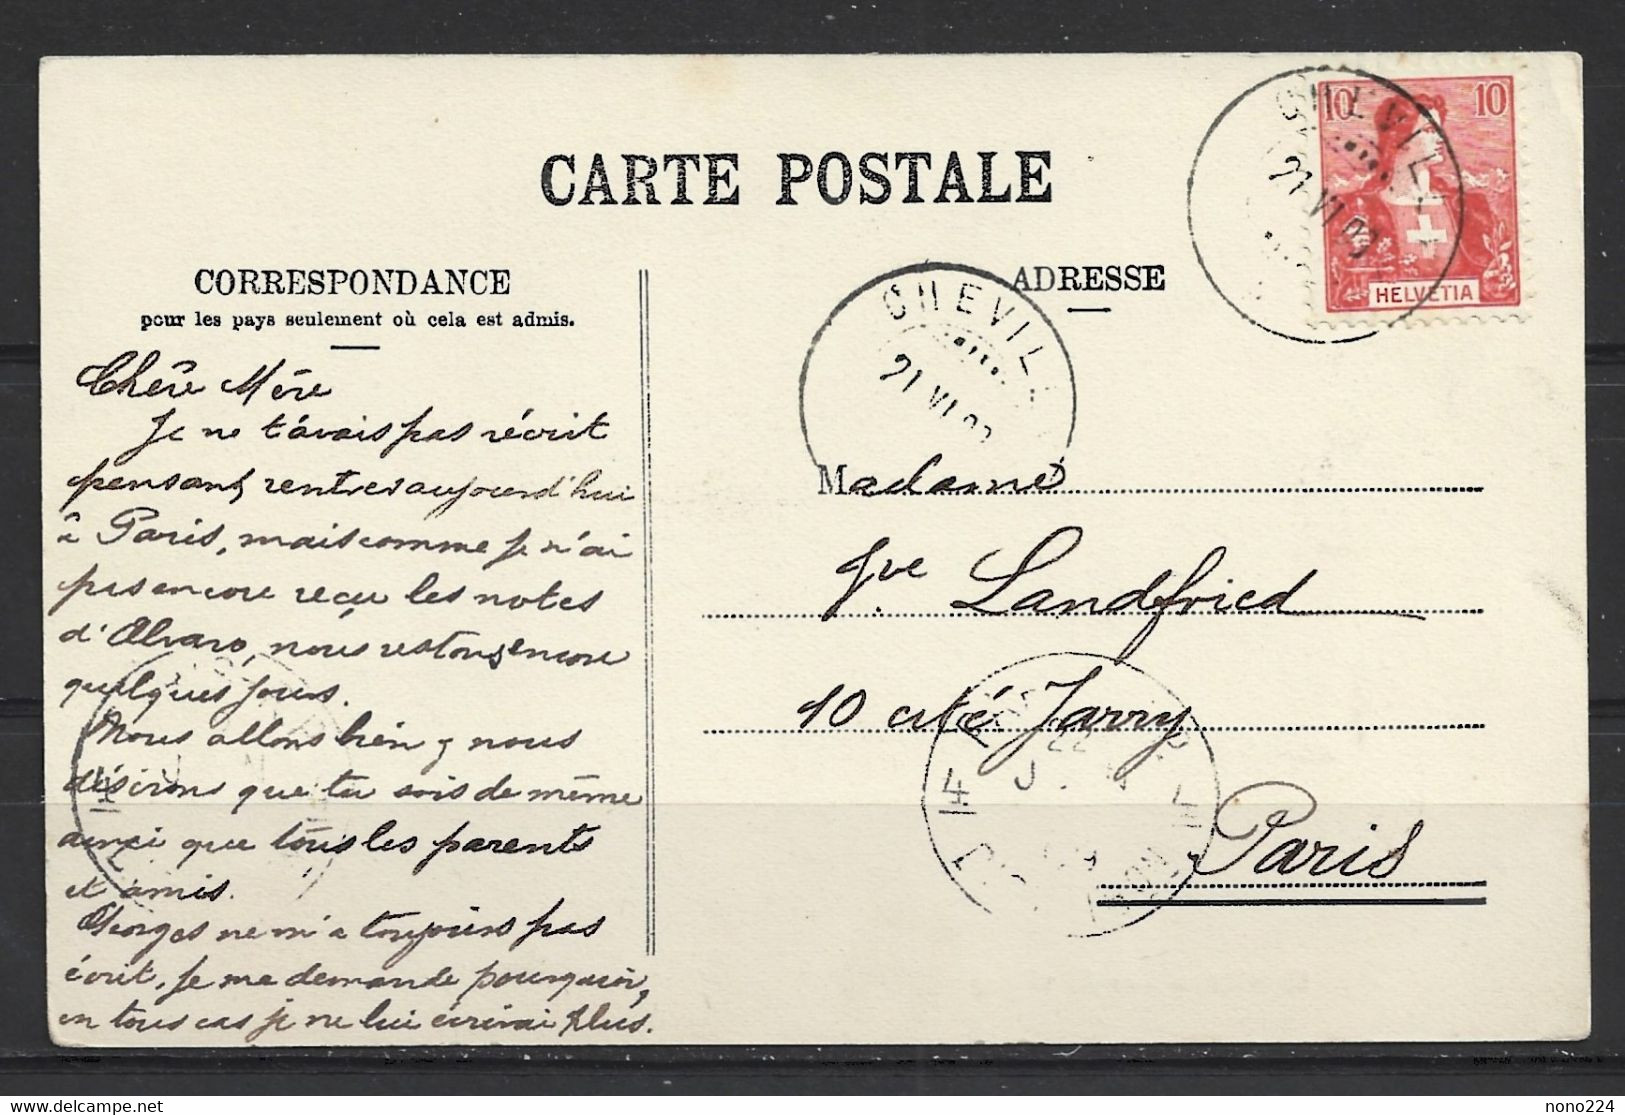 CARTE POSTALE
CORRESPONDANCE
pour les pays seulement où cela est admis.
ADRESSE
10 10
HELVETIA
CHEVIL
21 VI 09
CHEVIL
21 VI
Chère Mère
Je ne t'avais pas récrit
pensant rentrer aujourd'hui
à Paris, mais comme je n'ai
pas encore reçu les notes
d'Alvaro, nous restons encore
quelques jours.
Nous allons bien & nous
désirons que tu sois de même
ainsi que tous les parents
et amis.
Georges ne m'a toujours pas
écrit, je me demande pourquoi,
en tous cas je ne lui écrirai plus.
Madame
Landfried
10 cité Jarry
Paris
22
https://www.delcampe.net
nono224